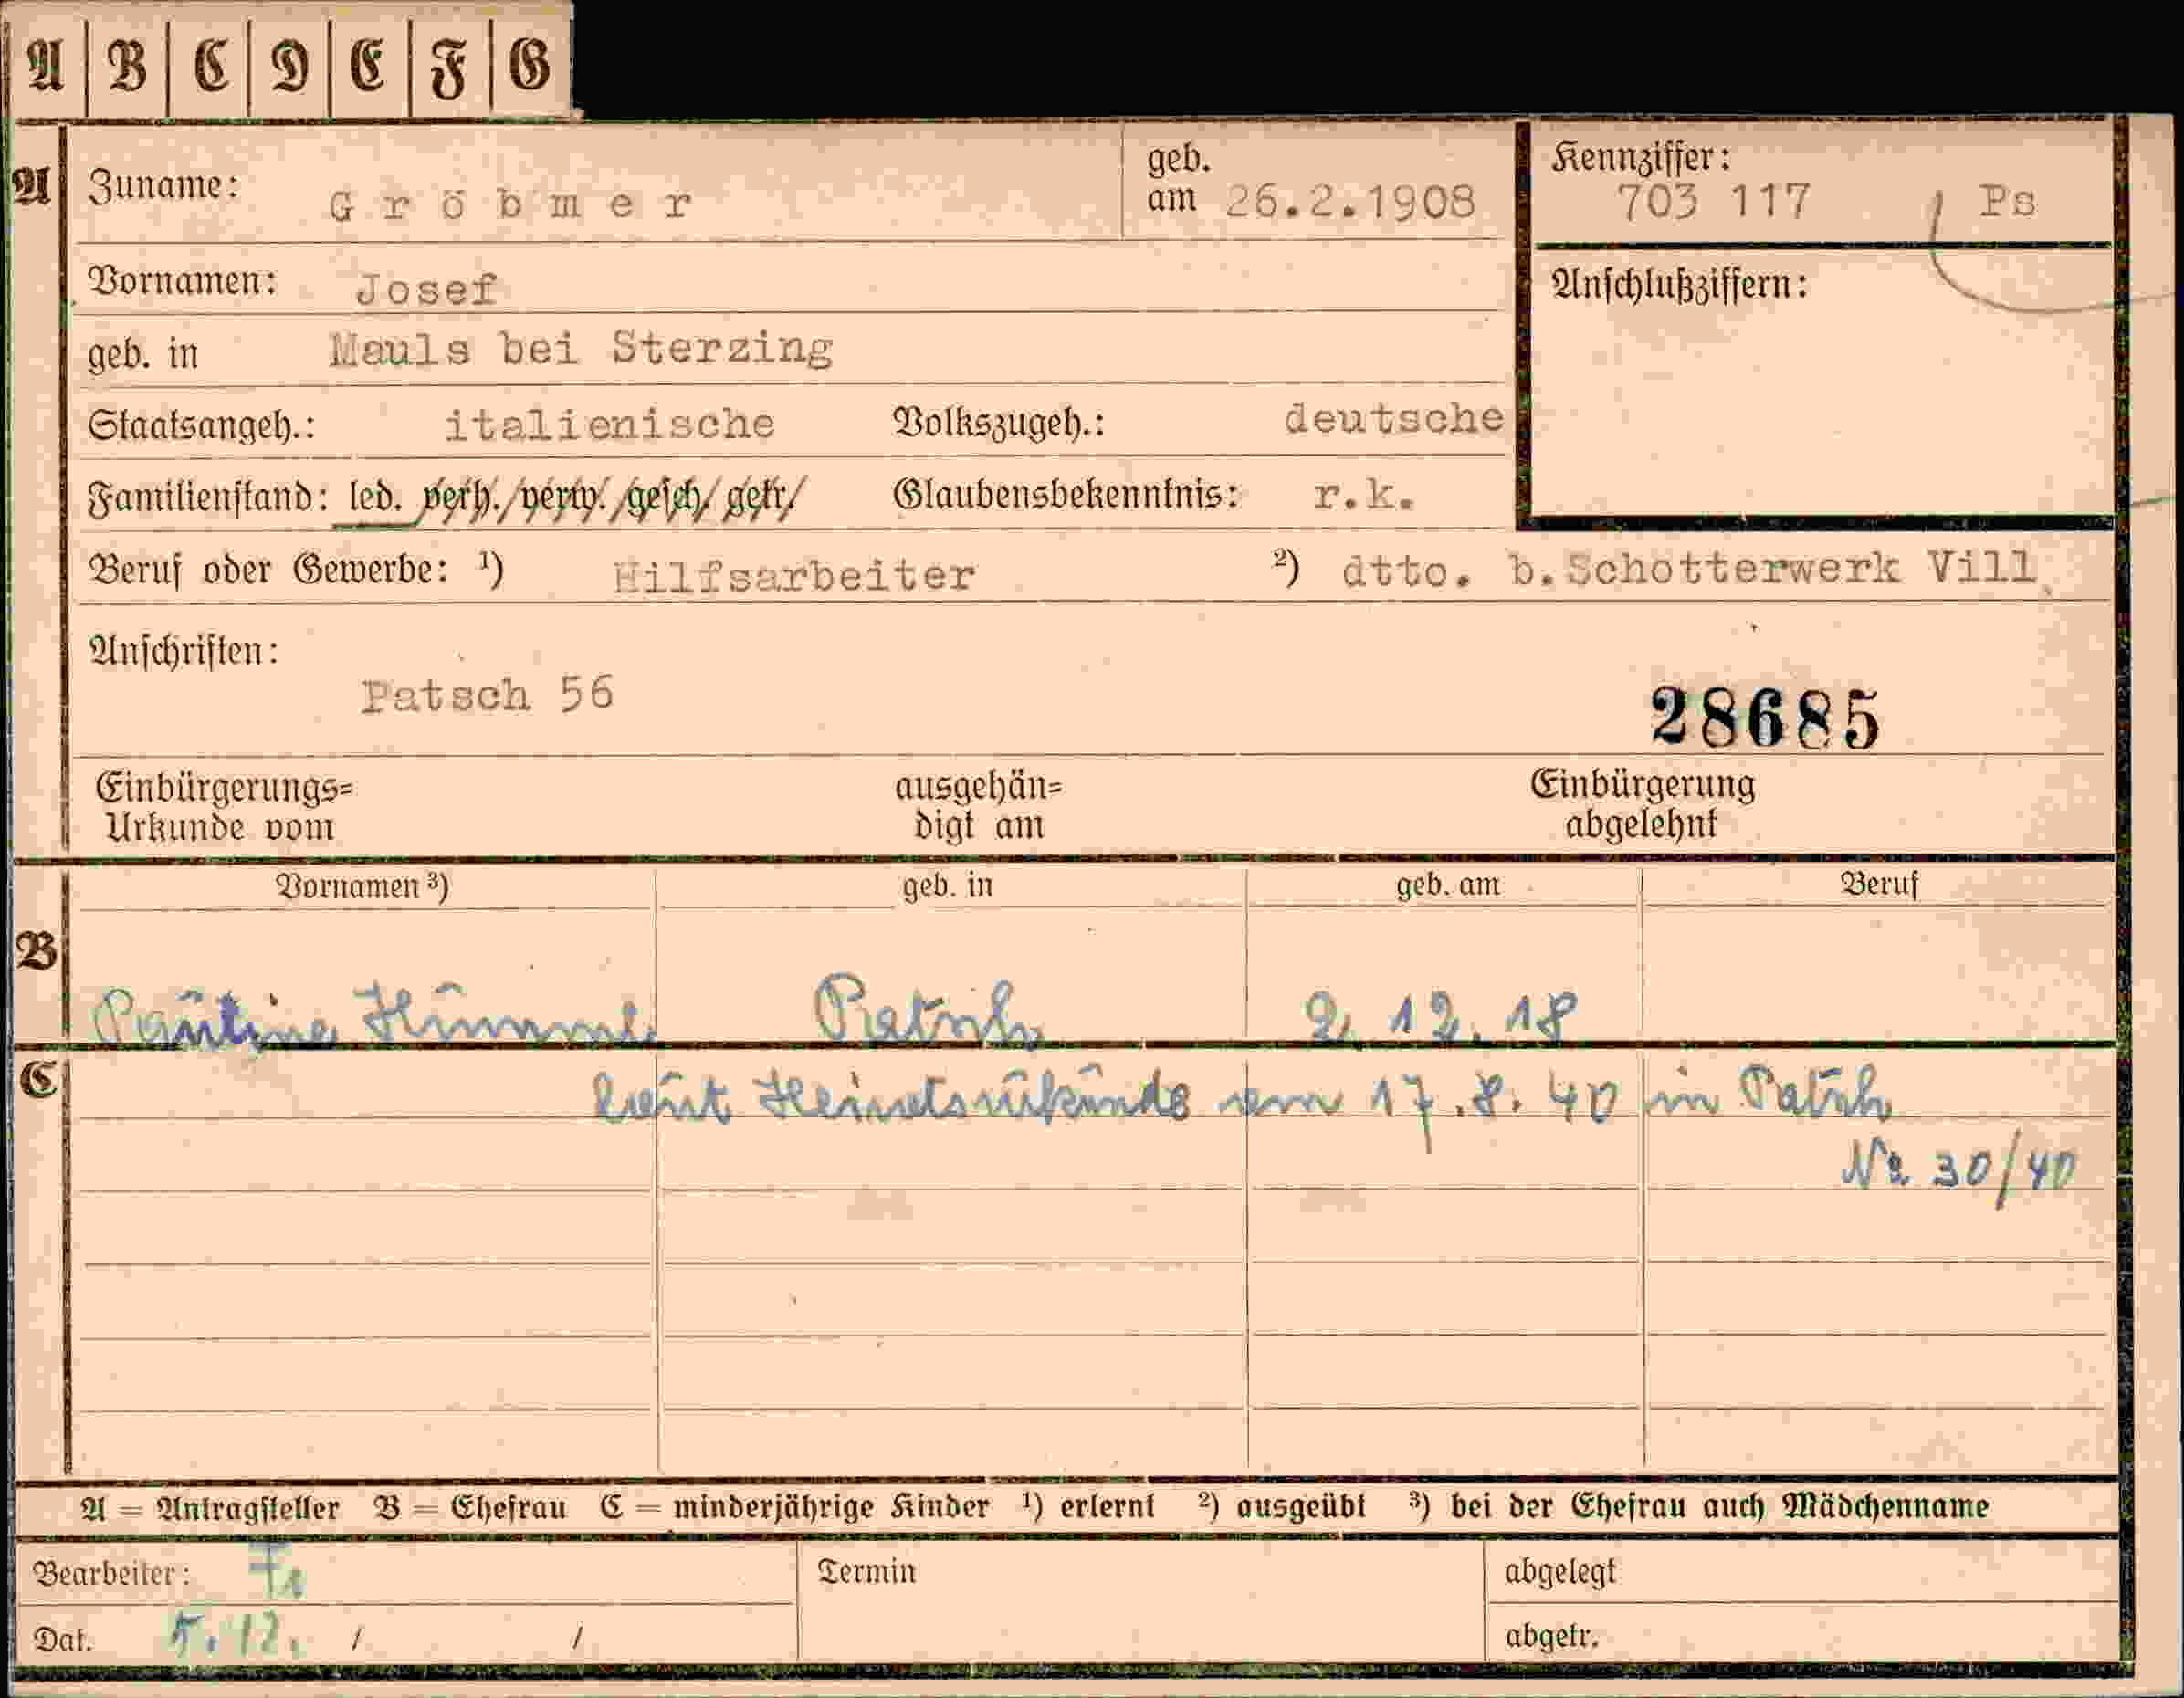 A B C D E F G
A Zuname: Gröbmer geb. am 26.2.1908 Kennziffer: 703 117 Ps
Vornamen: Josef Anschlußziffern:
geb. in Mauls bei Sterzing
Staatsangeh.: italienische Volkszugeh.: deutsche
Familienstand: led. verh./verw./gesch/getr/ Glaubensbekenntnis: r.k.
Beruf oder Gewerbe: ¹) Hilfsarbeiter ²) dtto. b.Schotterwerk Vill
Anschriften:
Patsch 56
28685
Einbürgerungs= ausgehän= Einbürgerung
Urkunde vom digt am abgelehnt
Vornamen ³) geb. in geb. am Beruf
B
Pauline Hummel Patsch 2. 12. 18
C
laut Heiratsurkunde vom 17.8.40 in Patsch
Nr. 30/40
A = Antragsteller B = Ehefrau C = minderjährige Kinder ¹) erlernt ²) ausgeübt ³) bei der Ehefrau auch Mädchenname
Bearbeiter: Termin abgelegt
Dat. 5.12. / / abgetr.